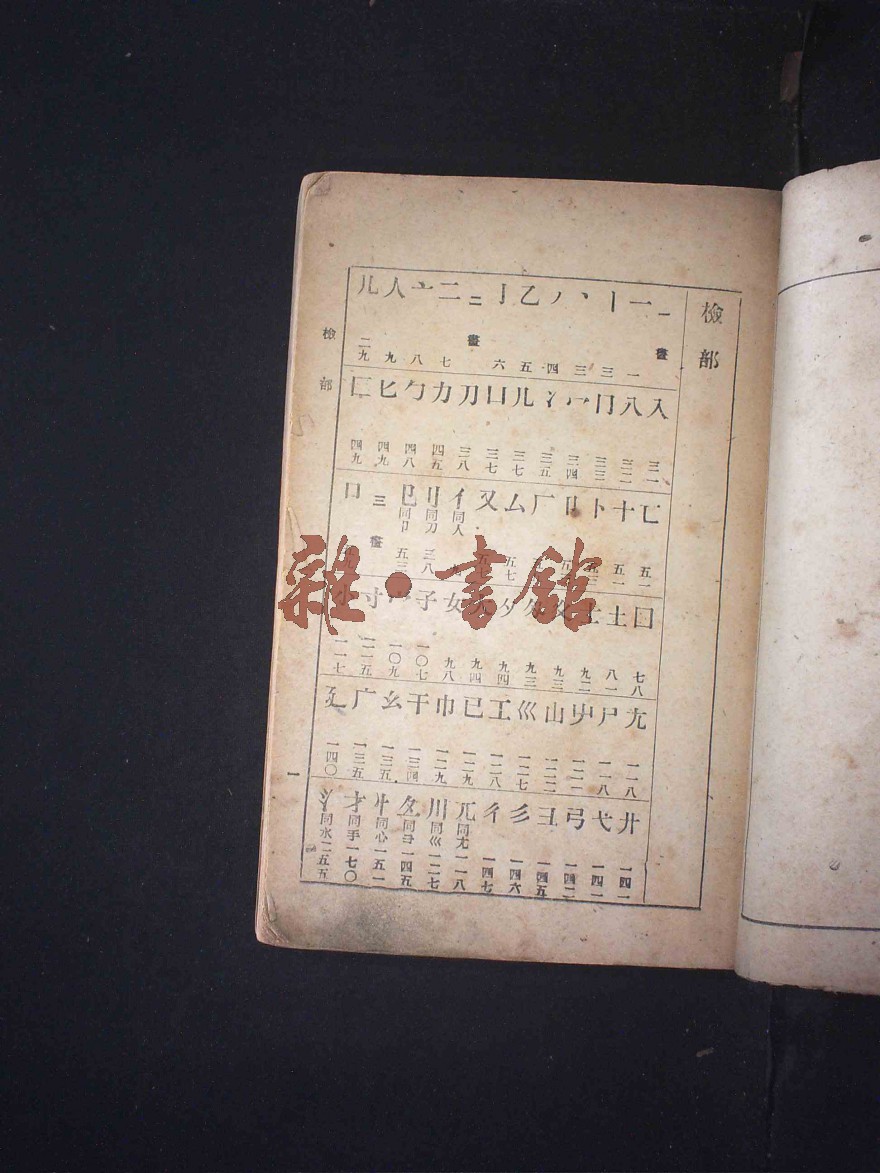 檢部
一畫
一 一
丨 三
丶 三
丿 四
乙 五
亅 六
二畫
二 七
亠 八
人 九
儿 二九
入 三一
八 三二
冂 三三
冖 三四
冫 三五
几 三七
凵 三七
刀 三八
力 四五
勹 四八
匕 四九
匚 四九
匸 五一
十 五一
卜
卩
厂
厶 五七
又 五七
亻同人 九
刂同刀 三八
㔾同卩 五三
三畫
口
囗 七八
土 八一
士 九二
夂 九三
夊 九三
夕 九四
大 九四
女 九八
子 一〇七
宀 一〇九
寸 一一五
小 一一七
尢 一一八
尸 一一八
屮 一二一
山 一二二
巛 一二七
工 一二八
已 一二九
巾 一二九
干 一三四
幺 一三五
广 一三五
廴 一四〇
廾 一四一
弋 一四一
弓 一四二
彐 一四五
彡 一四六
彳 一四七
兀同尢 一一八
川同巛 一二七
彑同彐 一四五
忄同心 一五一
才同手 一七〇
氵同水 二五五
檢部
一
雜·書館